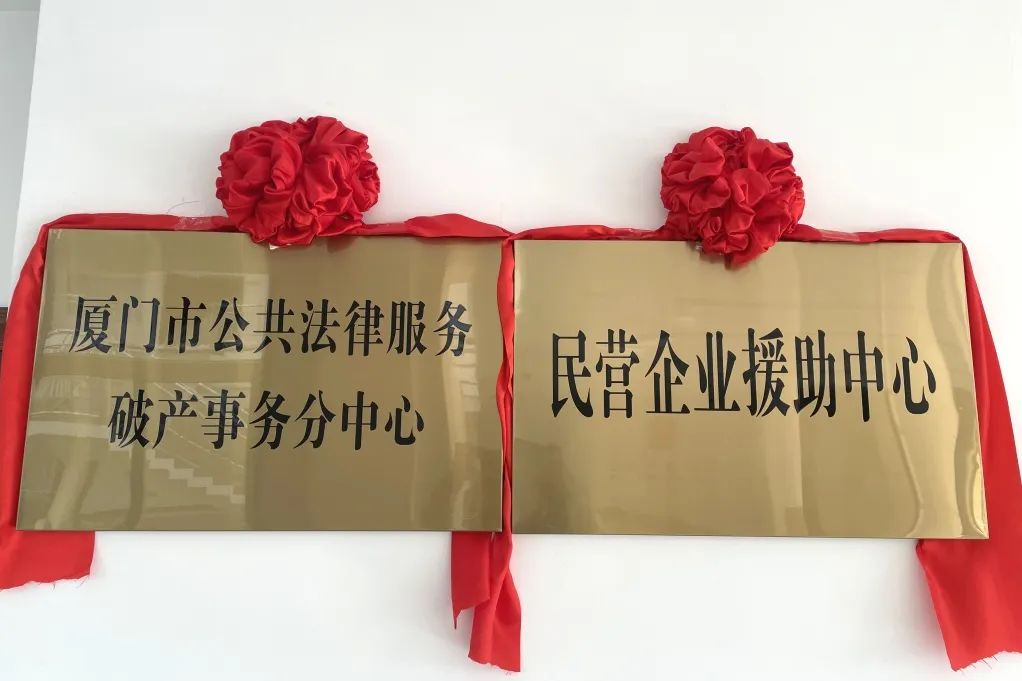 厦门市公共法律服务
破产事务分中心
民营企业援助中心